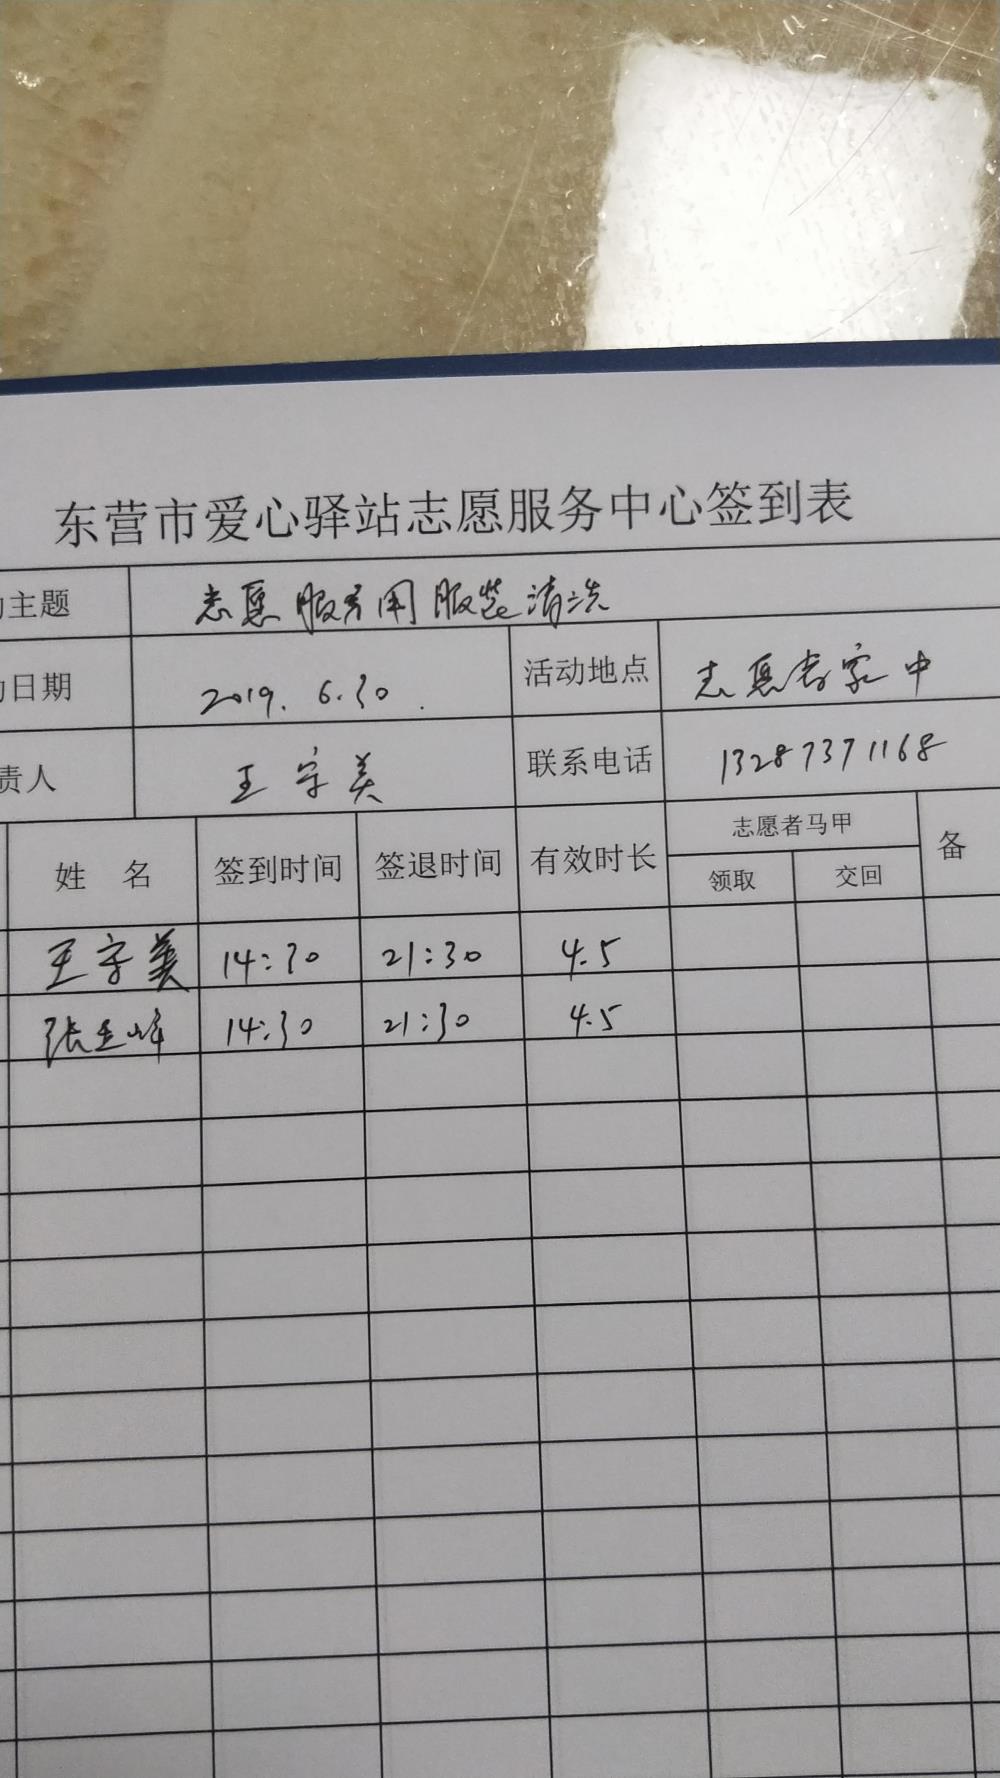 东营市爱心驿站志愿服务中心签到表
主题 志愿服务用服装清洗
日期 2019.6.30. 活动地点 志愿者家中
责人 王守美 联系电话 13287371168
姓 名 签到时间 签退时间 有效时长 志愿者马甲 备
领取 交回
王守美 14:30 21:30 4.5
张玉峰 14:30 21:30 4.5